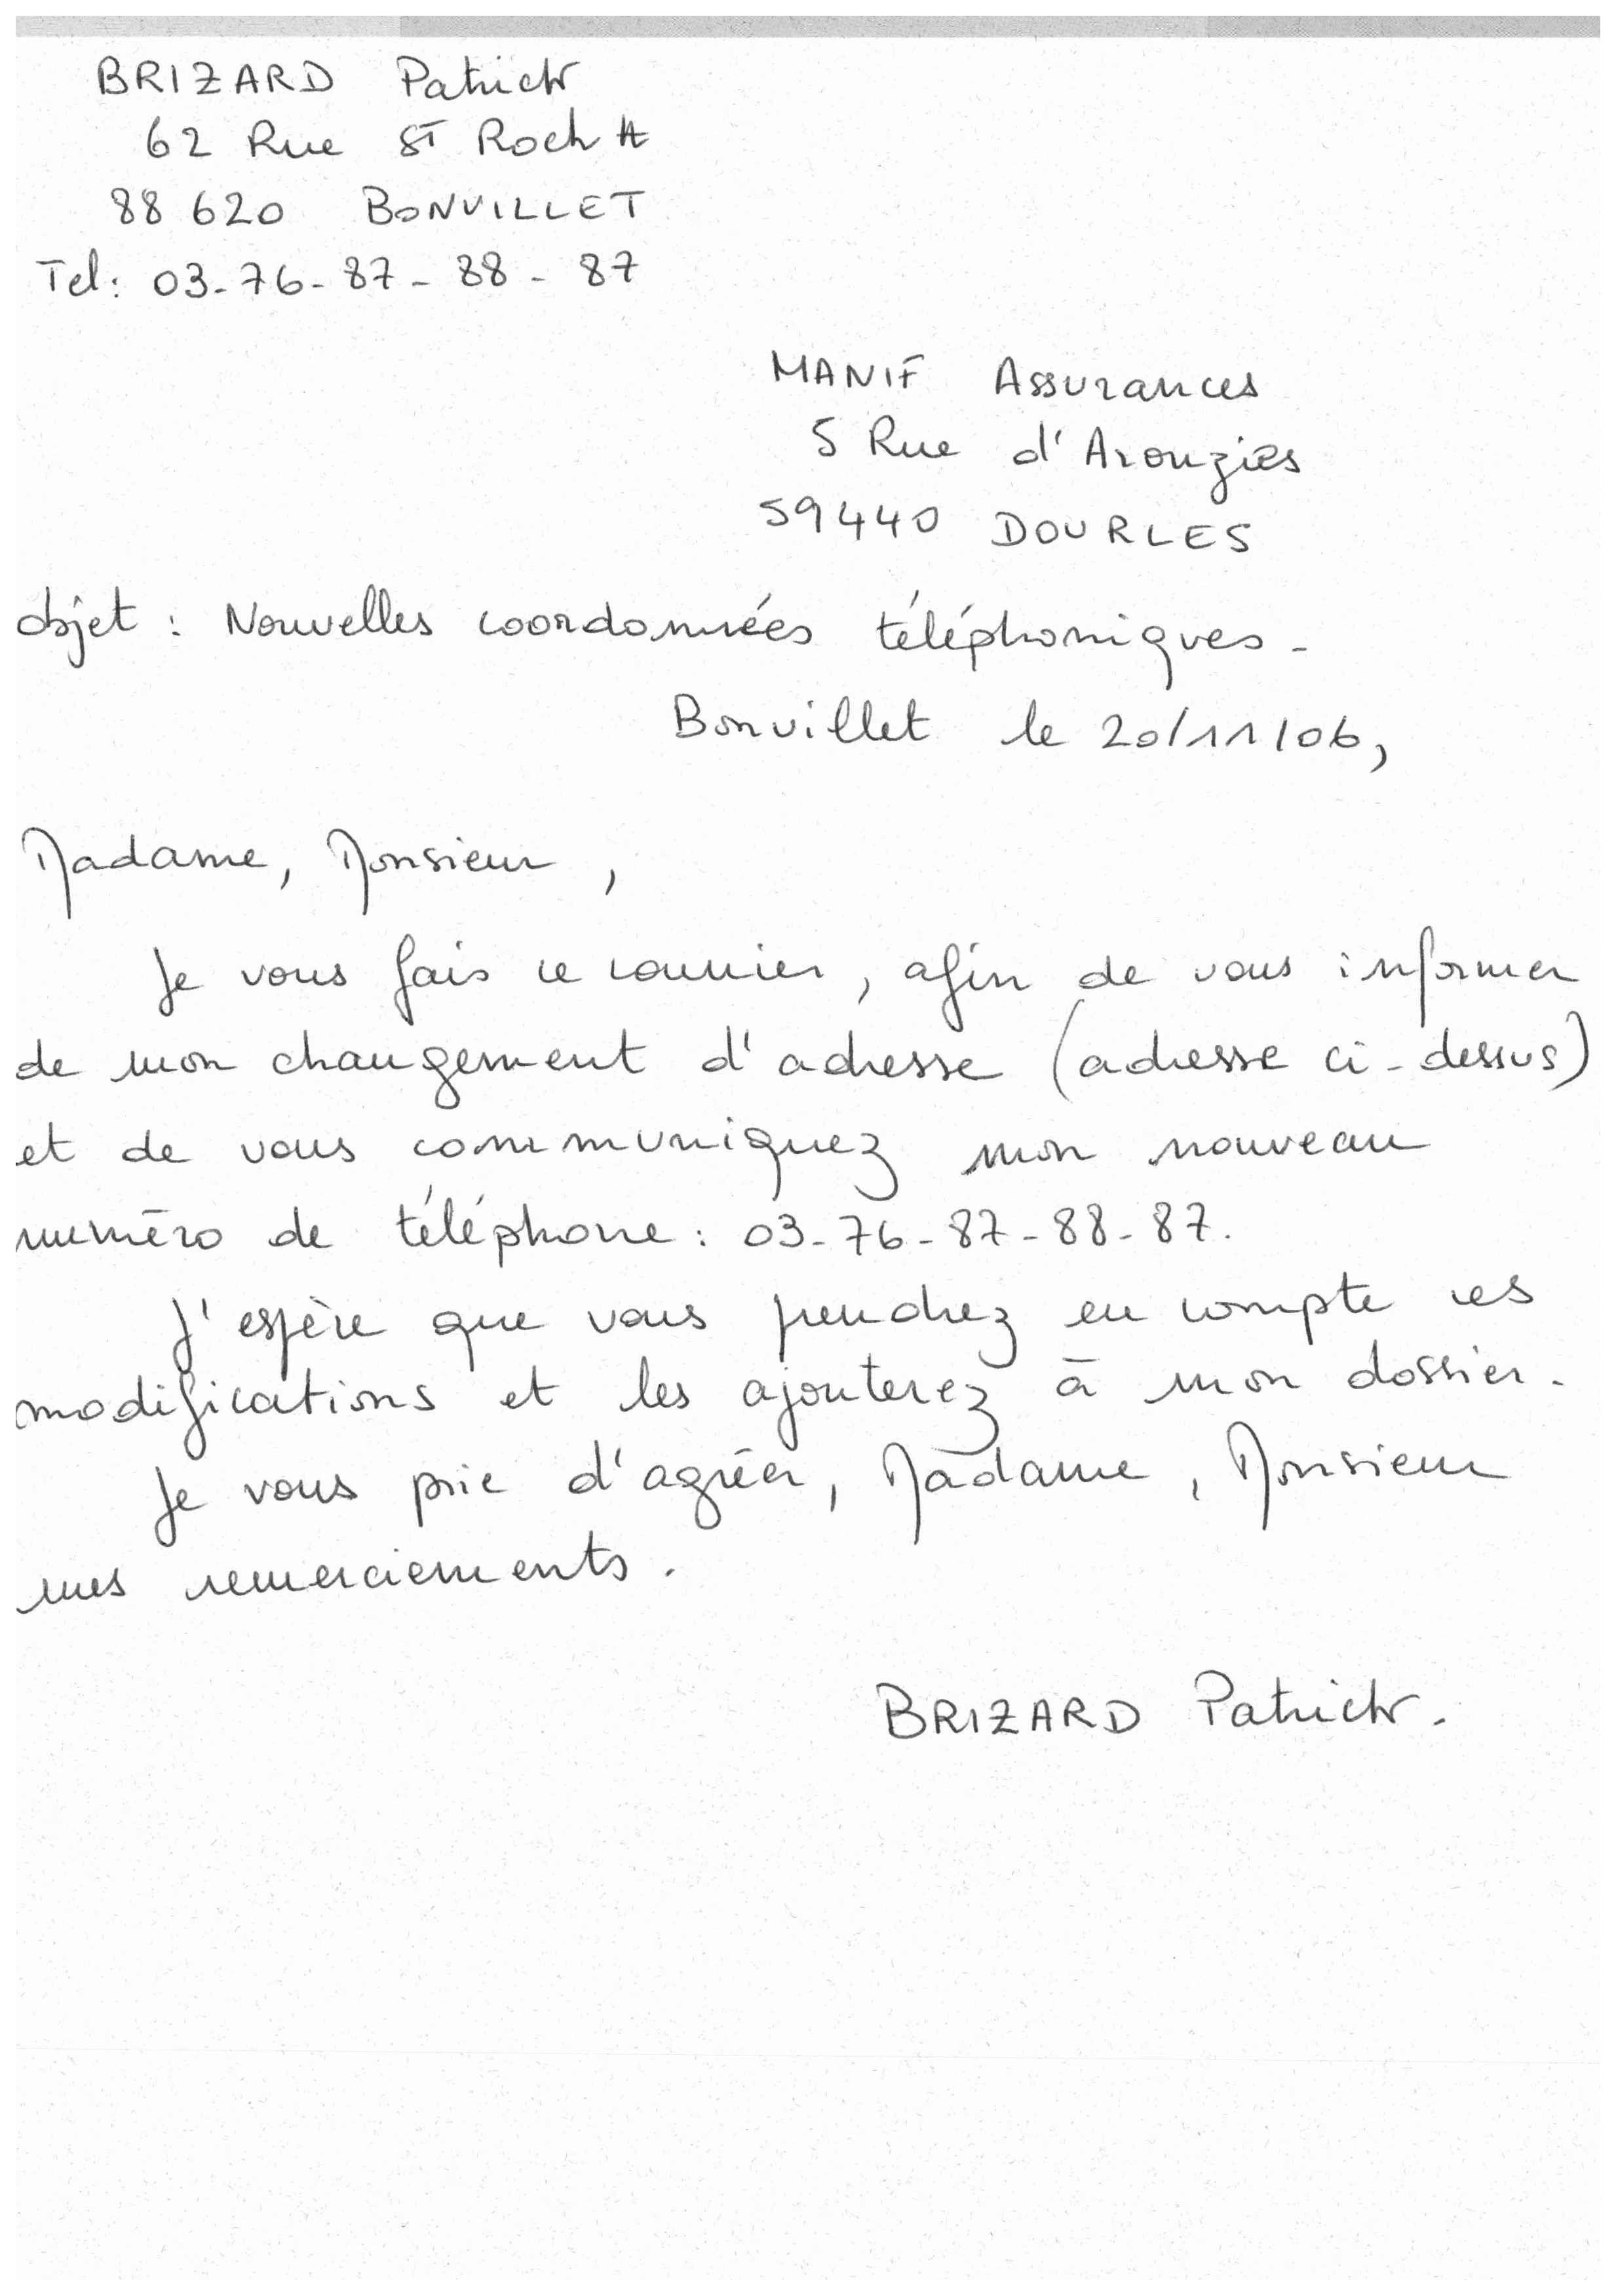 BRIZARD Patrick
62 Rue St Roch
88 620 BONVILLET
Tel: 03-76-87-88-87
MANIF Assurances
5 Rue d'Arouzies
59440 DOURLES
objet : Nouvelles coordonnées téléphoniques-
Bonvillet le 20/11/06,
Madame, Monsieur,
Je vous fais ce courrier, afin de vous informer
de mon changement d'adresse (adresse ci-dessus)
et de vous communiquez mon nouveau
numéro de téléphone: 03-76-87-88-87.
J'espère que vous prendrez en compte ces
modifications et les ajouterez à mon dossier.
Je vous prie d'agréer, Madame, Monsieur
mes remerciements.
BRIZARD Patrick.